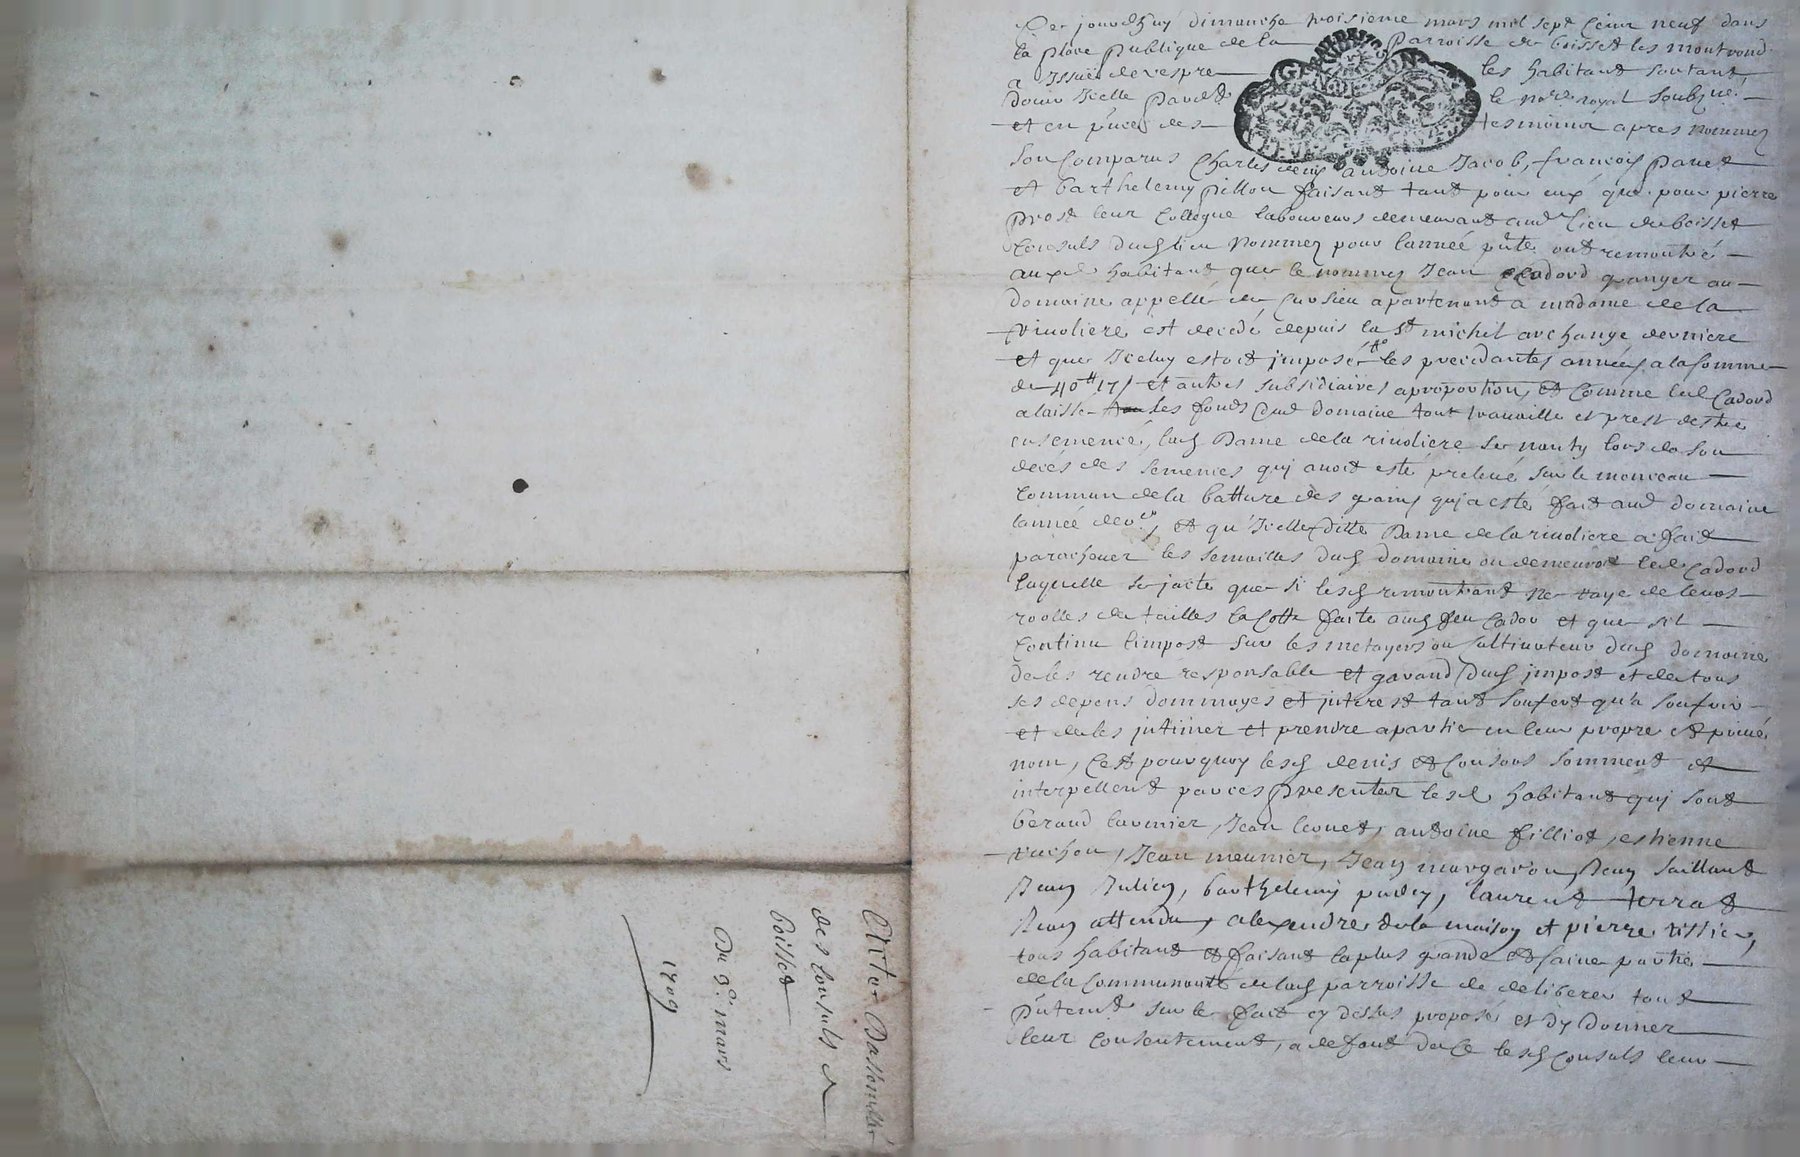 Ce jourdhuy dimanche troisieme mars mil sept cent neuf dans
la place publique de la parroisse de boisset les montrond
a Issuë de vespre les habitant sortant
dicelle pardt le nore royal soubzne
et en pnce des tesmoins apres nommez
son comparus Charles denis antoine Jacob, françois paret
et barthelemy pillon faisant tant pour eux que pour pierre
prost leur collegue laboureurs demeurant aud lieu de boisset
consuls dud lieu nommez pour lannée pnte ont remontré
auxd habitant que le nommez Jean Cadord granger au
domaine appellé de Cursieu apartenant a madame de la
rivoliere est decedé depuis la st michel archange derniere
et que Iceluy estoit imposé les precedantes années a la somme
de 40tt 17s et autres subsidiaires a proportion, et comme led Cadord
a laisse les fonds dud domaine tout travaille et prest destre
ensemencé, lad Dame de la rivoliere se nanty lors de son
decés des semences qui avoit esté prelevé sur le monceau
commun de la batture des grains qui a esté fait aud domaine
lannée derre, et qu'Icelle ditte Dame de la rivoliere a fait
parachever les semailles dud domaine ou demeuroit led Cadord
laquelle se jacte que si lesd remontrant ne raye de leurs
roolles de tailles la cotte faite aud feu Cadou et que sil
continu limpost sur les metayers ou cultivateur dud domaine
de les rendre responsable et garand dud impost et de tous
ses depens dommages et interest tant soufert qu'a soufrir
et de les intimer et prendre a partie en leur propre et privé
nom, cest pourquoy lesd denis et consors somment et
interpellent par ces presenter lesd habitant qui sont
beraud lavenier, Jean couet, antoine filliot, estienne
vachon, Jean meunier, Jean margaron, Jean saillant
Jean Julien, barthelemy, laurent terrat
Jean attendu, alexandre de la maison et pierre tissier,
tous habitant et faisant la plus grande et saine partie
de la communauté de lad parroisse de deliberer tout
pntemt sur le fait cy dessus proposé et dy donner
leur consentement, a defaut de ce lesd consuls leur
Acte Dassemblée
des consuls de
boisset
Du 3e mars
1709